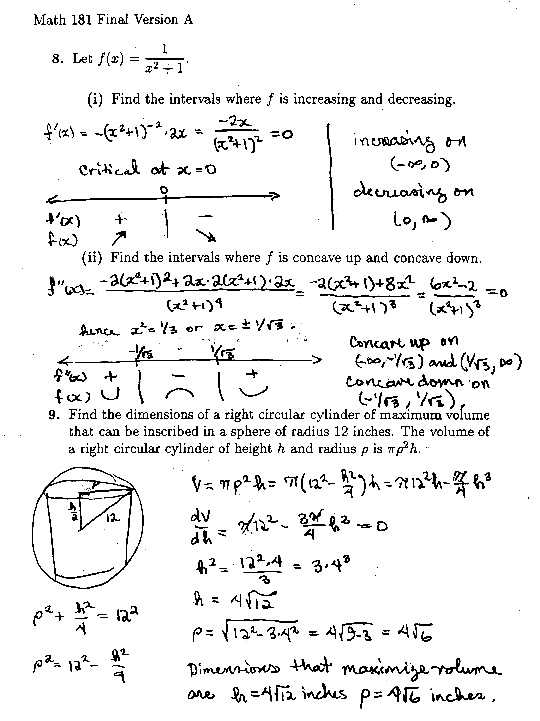 Math 181 Final Version A
8. Let f(x) = 1/(x² + 1).
(i) Find the intervals where f is increasing and decreasing.
f'(x) = -(x²+1)⁻²·2x = -2x/(x²+1)² = 0
critical at x = 0
increasing on
(-∞, 0)
decreasing on
(0, ∞)
0
f'(x) + | −
f(x) ↗ ↘
(ii) Find the intervals where f is concave up and concave down.
f''(x) = (-2(x²+1)²+2x·2(x²+1)·2x)/(x²+1)⁴ = (-2(x²+1)+8x²)/(x²+1)³ = (6x²-2)/(x²+1)³ = 0
hence x² = 1/3 or x = ± 1/√3.
-1/√3 1/√3
f''(x) + | − | +
f(x) ∪ | ∩ | ∪
Concave up on
(-∞, -1/√3) and (1/√3, ∞)
concave down on
(-1/√3, 1/√3).
9. Find the dimensions of a right circular cylinder of maximum volume
that can be inscribed in a sphere of radius 12 inches. The volume of
a right circular cylinder of height h and radius ρ is πρ²h.
ρ
h/2 12
ρ² + h²/4 = 12²
ρ² = 12² - h²/4
V = πρ²h = π(12² - h²/4)h = π12²h - π/4 h³
dV/dh = π12² - 3π/4 h² = 0
h² = 12²·4/3 = 3·4³
h = 4√12
ρ = √(12²-3·4²) = 4√(9-3) = 4√6
Dimensions that maximize volume
are h = 4√12 inches ρ = 4√6 inches.